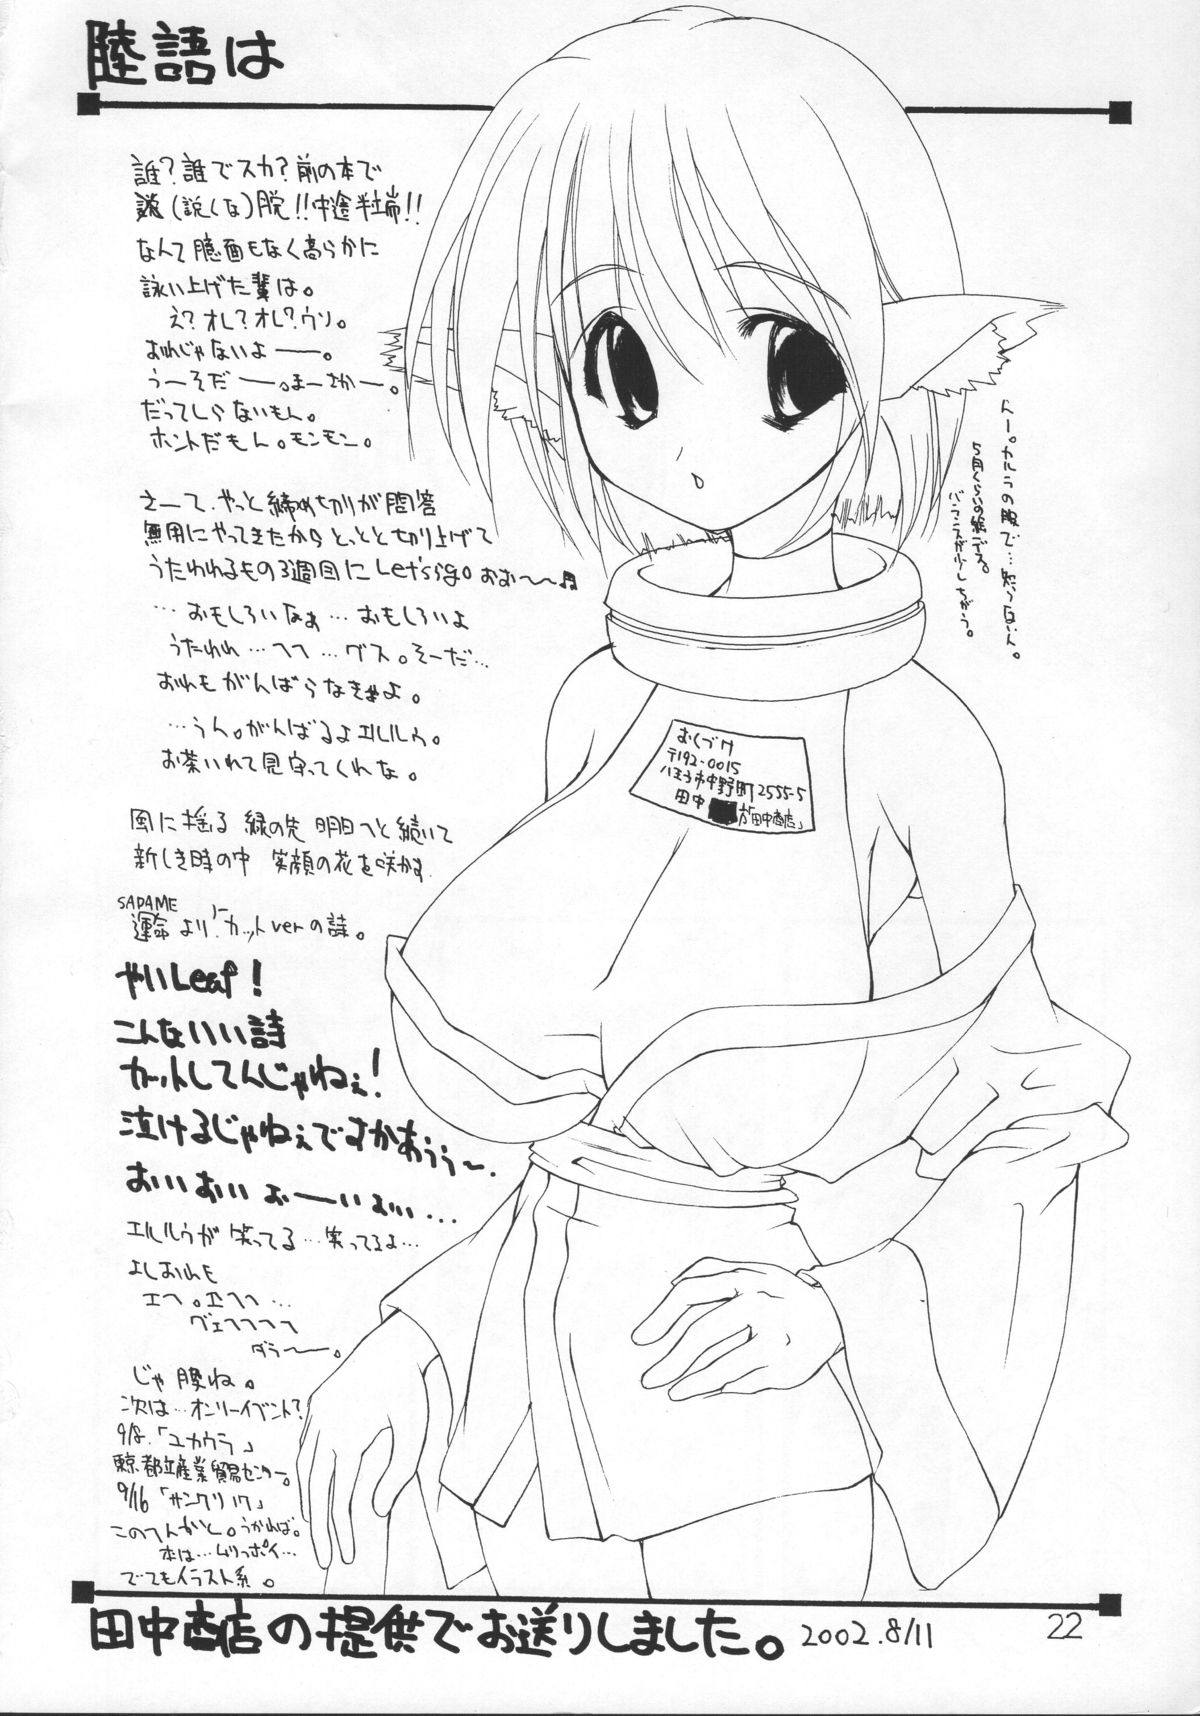 陸語は
誰?誰でスカ?前の本で
談(説くな)脱!!中途半端!!
なんて臆面もなく高らかに
詠い上げた輩は。
え?オレ?オレ?ウソ。
おれじゃないよー―。
うーそだー―。まーさかー。
だってしらないもん。
ホントだもん。モンモン。
さーて、やっと締め切りが問答
無用にやってきたから とっとと切り上げて
うたわれるもの3週目にLet'sgo おお〜〜♬
…おもしろいなぁ…おもしろいよ
うたわれ…へへ…グス。そーだ…
おれもがんばらなきゃよ。
…うん。がんばるよエルルゥ。
お茶いれて見守ってくれな。
風に揺る 緑の先 明日へと続いて
新しき時の中 笑顔の花を咲かす
SADAME
運命 より、カットverの詩。
やいLeaf!
こんないい詩
カットしてんじゃねぇ!
泣けるじゃねぇですかあぅぅ〜、
おいおい ぉーーいぉぃ…
エルルゥが 笑ってる…笑ってるよ…
よしおれも
エヘ。エヘヘ…
ヴェヘヘヘヘ
ダラ〜―。
じゃ 膜ね。
次は…オンリーイベント?
9/8.「ユカウラ」
東京都立産業貿易センター。
9/16「サンクリ17」
このへんかと。うかれば。
本は…ムリっポイ…
でてもイラスト系。
んー。カルラの服で…知らないん。
5月くらいの絵デス。
バランスが少しちがう。
おくづけ
〒192-0015
八王子市中野町2555-5
田中 が「田中商店」
田中商店の提供でお送りしました。
2002.8/11
22